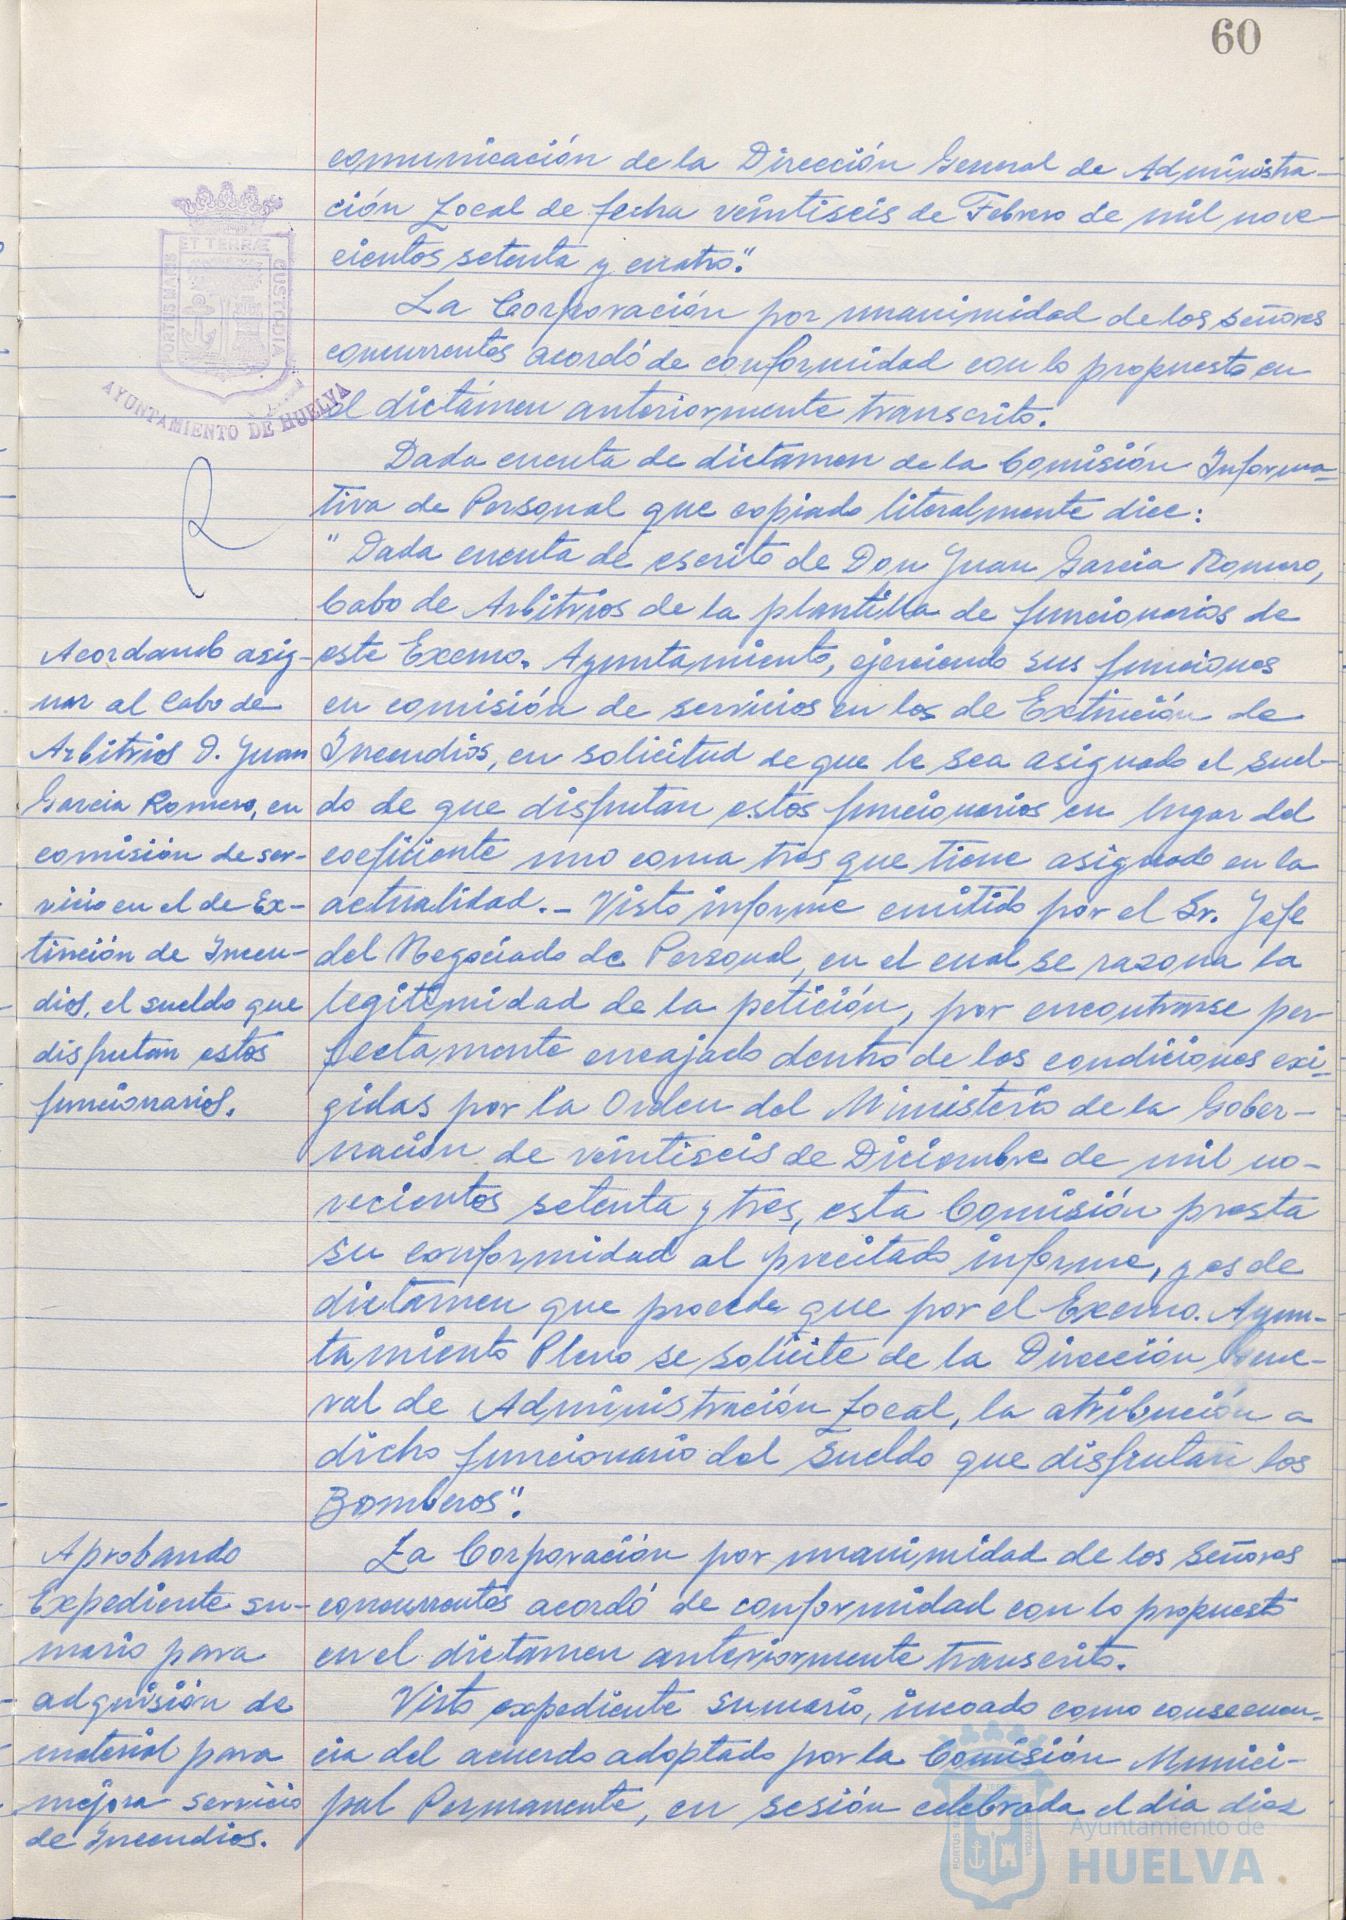 60
comunicación de la Dirección General de Administra-
ción Local de fecha veintiseis de Febrero de mil nove-
cientos setenta y cuatro."
La Corporación por unanimidad de los señores
concurrentes acordó de conformidad con lo propuesto en
el dictámen anteriormente transcrito.
Dada cuenta de dictamen de la Comisión Informa-
tiva de Personal que copiado literalmente dice:
"Dada cuenta de escrito de Don Juan Garcia Romero,
Cabo de Arbitrios de la plantilla de funcionarios de
este Excmo. Ayuntamiento, ejerciendo sus funciones
en comisión de servicios en los de Extinción de
Incendios, en solicitud de que le sea asignado el suel-
do de que disfrutan estos funcionarios en lugar del
coeficiente uno coma tres que tiene asignado en la
actualidad.- Visto informe emitido por el Sr. Jefe
del Negociado de Personal, en el cual se razona la
legitimidad de la petición, por encontrarse per-
fectamente encajado dentro de las condiciones exi-
gidas por la Orden del Ministerio de la Gober-
nación de veintiseis de Diciembre de mil no-
vecientos setenta y tres, esta Comisión presta
su conformidad al precitado informe, y es de
dictamen que procede que por el Excmo. Ayun-
tamiento Pleno se solicite de la Dirección Gene-
ral de Administración Local, la atribución a
dicho funcionario del sueldo que disfrutan los
Bomberos".
La Corporación por unanimidad de los señores
concurrentes acordó de conformidad con lo propuesto
en el dictamen anteriormente transcrito.
Visto expediente sumario, incoado como consecuen-
cia del acuerdo adoptado por la Comisión Munici-
pal Permanente, en sesión celebrada el dia diez
Acordando asig-
nar al Cabo de
Arbitrios D. Juan
Garcia Romero, en
comisión de ser-
vicio en el de Ex-
tinción de Incen-
dios, el sueldo que
disfrutan estos
funcionarios.
Aprobando
Expediente su-
mario para
adquisión de
material para
mejora servicio
de Incendios.
PORTUS MARIS
ET TERRÆ
CUSTODIA
AYUNTAMIENTO DE HUELVA
Ayuntamiento de
HUELVA